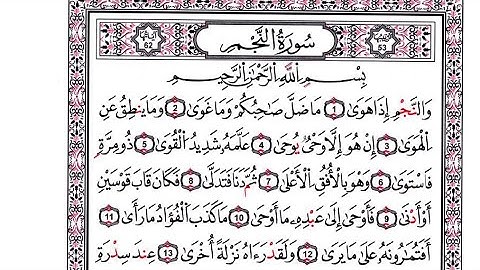 آياتها 62 سُورَةُ النَّجْمِ 53
بِسْمِ اللَّهِ الرَّحْمَٰنِ الرَّحِيمِ
وَالنَّجْمِ إِذَا هَوَىٰ 1 مَا ضَلَّ صَاحِبُكُمْ وَمَا غَوَىٰ 2 وَمَا يَنطِقُ عَنِ
الْهَوَىٰ 3 إِنْ هُوَ إِلَّا وَحْيٌ يُوحَىٰ 4 عَلَّمَهُ شَدِيدُ الْقُوَىٰ 5 ذُو مِرَّةٍ
فَاسْتَوَىٰ 6 وَهُوَ بِالْأُفُقِ الْأَعْلَىٰ 7 ثُمَّ دَنَا فَتَدَلَّىٰ 8 فَكَانَ قَابَ قَوْسَيْنِ
أَوْ أَدْنَىٰ 9 فَأَوْحَىٰ إِلَىٰ عَبْدِهِ مَا أَوْحَىٰ 10 مَا كَذَبَ الْفُؤَادُ مَا رَأَىٰ 11
أَفَتُمَارُونَهُ عَلَىٰ مَا يَرَىٰ 12 وَلَقَدْ رَءَاهُ نَزْلَةً أُخْرَىٰ 13 عِندَ سِدْرَةِ